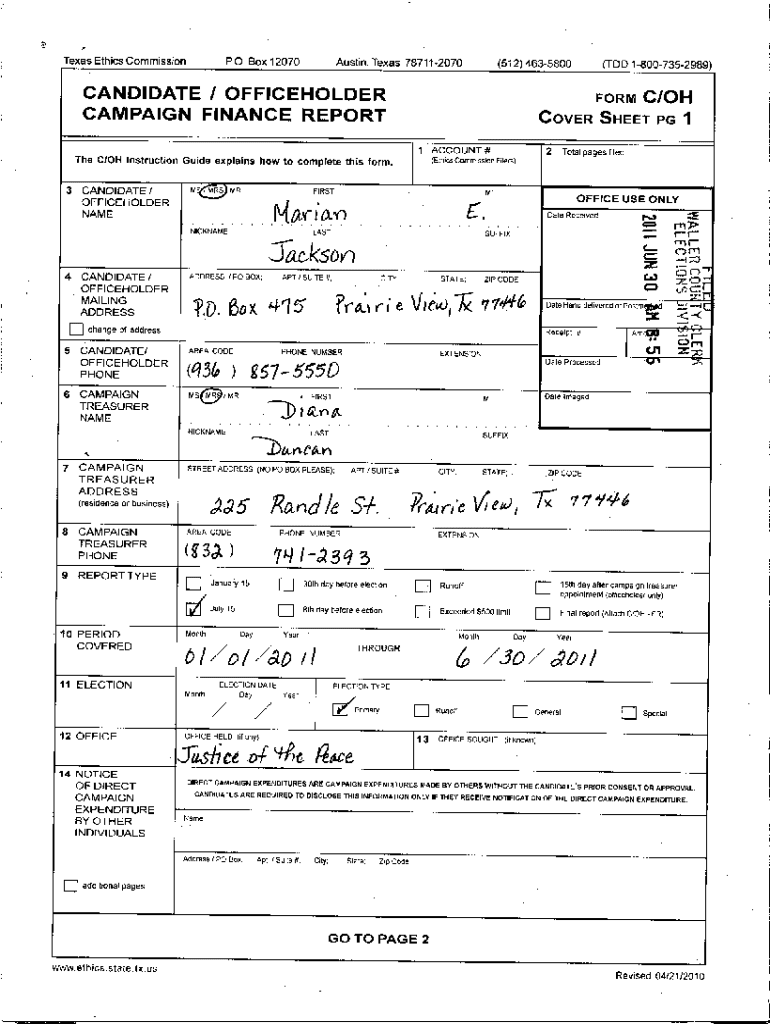 Texas Ethics Commission P.O. Box 12070 Austin, Texas 78711-2070 (512) 463-5800 (TDD 1-800-735-2989)
CANDIDATE / OFFICEHOLDER
CAMPAIGN FINANCE REPORT
FORM C/OH
COVER SHEET PG 1
The C/OH Instruction Guide explains how to complete this form.
1 ACCOUNT #
(Ethics Commission Filers)
2 Total pages filed:
3 CANDIDATE /
OFFICEHOLDER
NAME
MS / MRS / MR FIRST MI
Marian E.
NICKNAME LAST SUFFIX
Jackson
OFFICE USE ONLY
Date Received
FILED
WALLER COUNTY CLERK
ELECTIONS DIVISION
2011 JUN 30 AM 8:56
Date Hand-delivered or Postmarked
Receipt #
Date Processed
Date Imaged
4 CANDIDATE /
OFFICEHOLDER
MAILING
ADDRESS
change of address
ADDRESS / PO BOX; APT / SUITE #; CITY STATE; ZIP CODE
P.O. Box 475 Prairie View, Tx 77446
5 CANDIDATE/
OFFICEHOLDER
PHONE
AREA CODE PHONE NUMBER EXTENSION
(936) 857-5550
6 CAMPAIGN
TREASURER
NAME
MS / MRS / MR FIRST MI
Diana
NICKNAME LAST SUFFIX
Duncan
7 CAMPAIGN
TREASURER
ADDRESS
(residence or business)
STREET ADDRESS (NO PO BOX PLEASE); APT / SUITE # CITY; STATE; ZIP CODE
225 Randle St. Prairie View, Tx 77446
8 CAMPAIGN
TREASURER
PHONE
AREA CODE PHONE NUMBER EXTENSION
(832) 741-2393
9 REPORT TYPE
January 15 30th day before election Runoff 15th day after campaign treasurer
appointment (officeholder only)
July 15 8th day before election Exceeded $500 limit Final report (Attach C/OH - FR)
10 PERIOD
COVERED
Month Day Year THROUGH Month Day Year
01/01/2011 6/30/2011
11 ELECTION
ELECTION DATE
Month Day Year
/ /
ELECTION TYPE
Primary Runoff General Special
12 OFFICE
OFFICE HELD (if any)
Justice of the Peace
13 OFFICE SOUGHT (if known)
14 NOTICE
OF DIRECT
CAMPAIGN
EXPENDITURE
BY OTHER
INDIVIDUALS
additional pages
DIRECT CAMPAIGN EXPENDITURES ARE CAMPAIGN EXPENDITURES MADE BY OTHERS WITHOUT THE CANDIDATE'S PRIOR CONSENT OR APPROVAL.
CANDIDATES ARE REQUIRED TO DISCLOSE THIS INFORMATION ONLY IF THEY RECEIVE NOTIFICATION OF THE DIRECT CAMPAIGN EXPENDITURE.
Name
Address / PO Box; Apt. / Suite #; City; State; Zip Code
GO TO PAGE 2
www.ethics.state.tx.us
Revised 04/21/2010